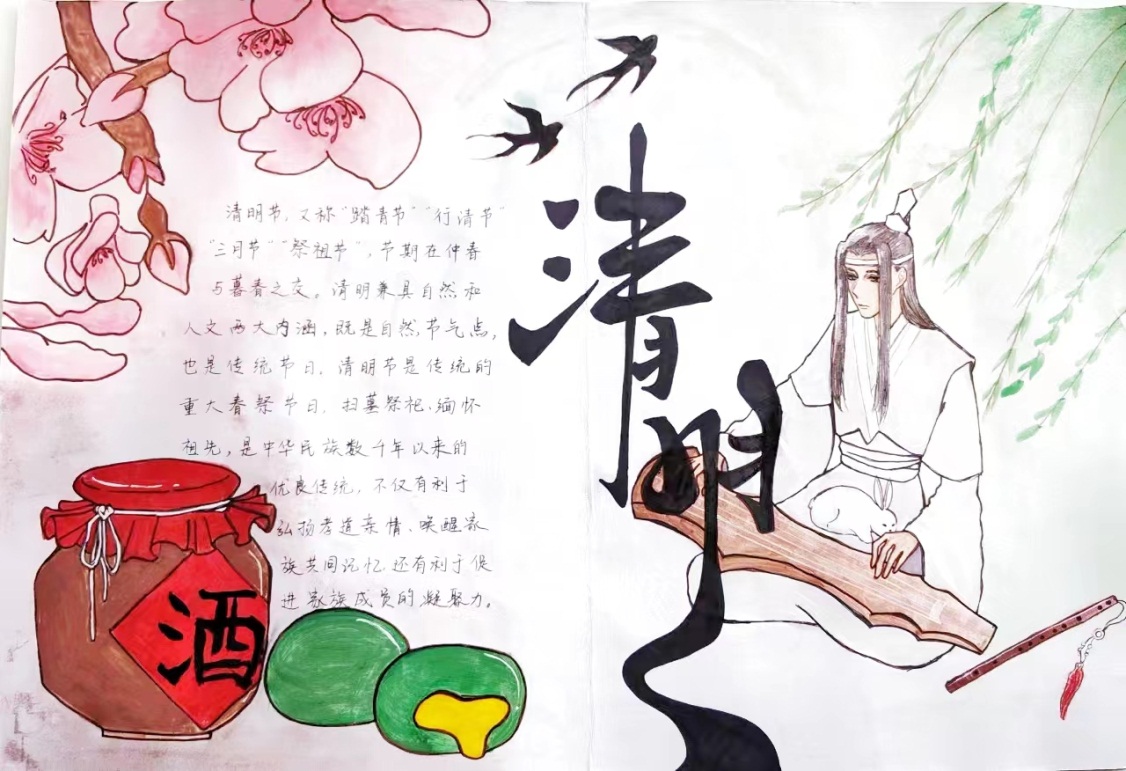 清明
清明节，又称“踏青节”“行清节”
“三月节”“祭祖节”，节期在仲春
与暮春之交。清明兼具自然和
人文两大内涵，既是自然节气点，
也是传统节日，清明节是传统的
重大春祭节日，扫墓祭祀、缅怀
祖先，是中华民族数千年以来的
优良传统，不仅有利于
弘扬孝道亲情、唤醒家
族共同记忆，还有利于促
进家族成员的凝聚力。
酒